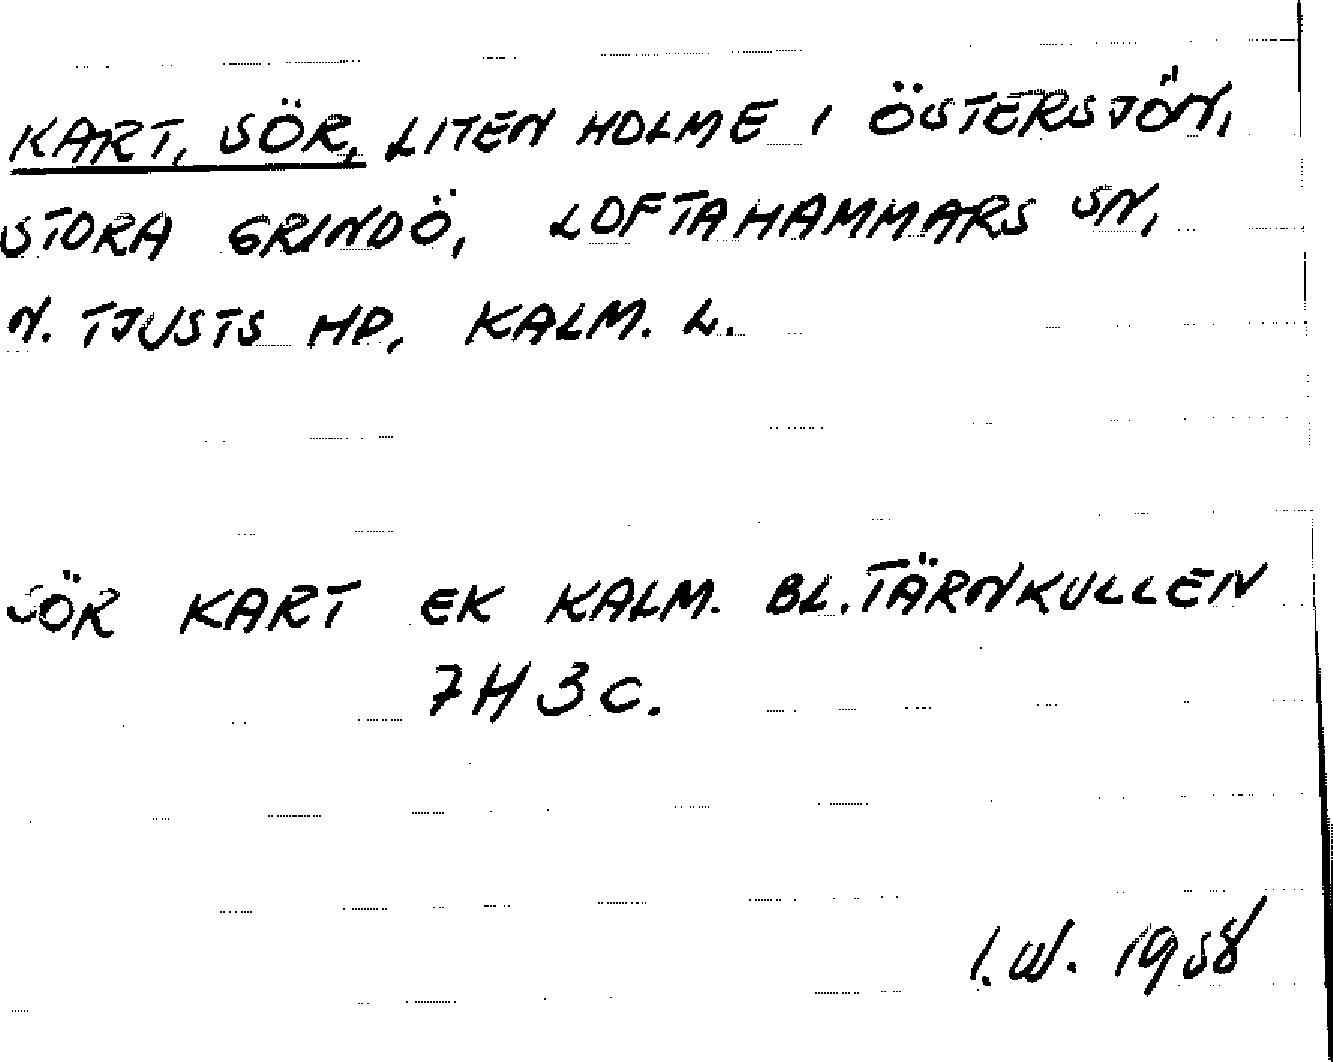 KART, SÖR, LITEN HOLME I ÖSTERSJÖN,
STORA GRINDÖ, LOFTAHAMMARS SN,
N. TJUSTS HD, KALM. L.
SÖR KART EK KALM. BL. TÄRNKULLEN
7H 3C.
I.W. 1958